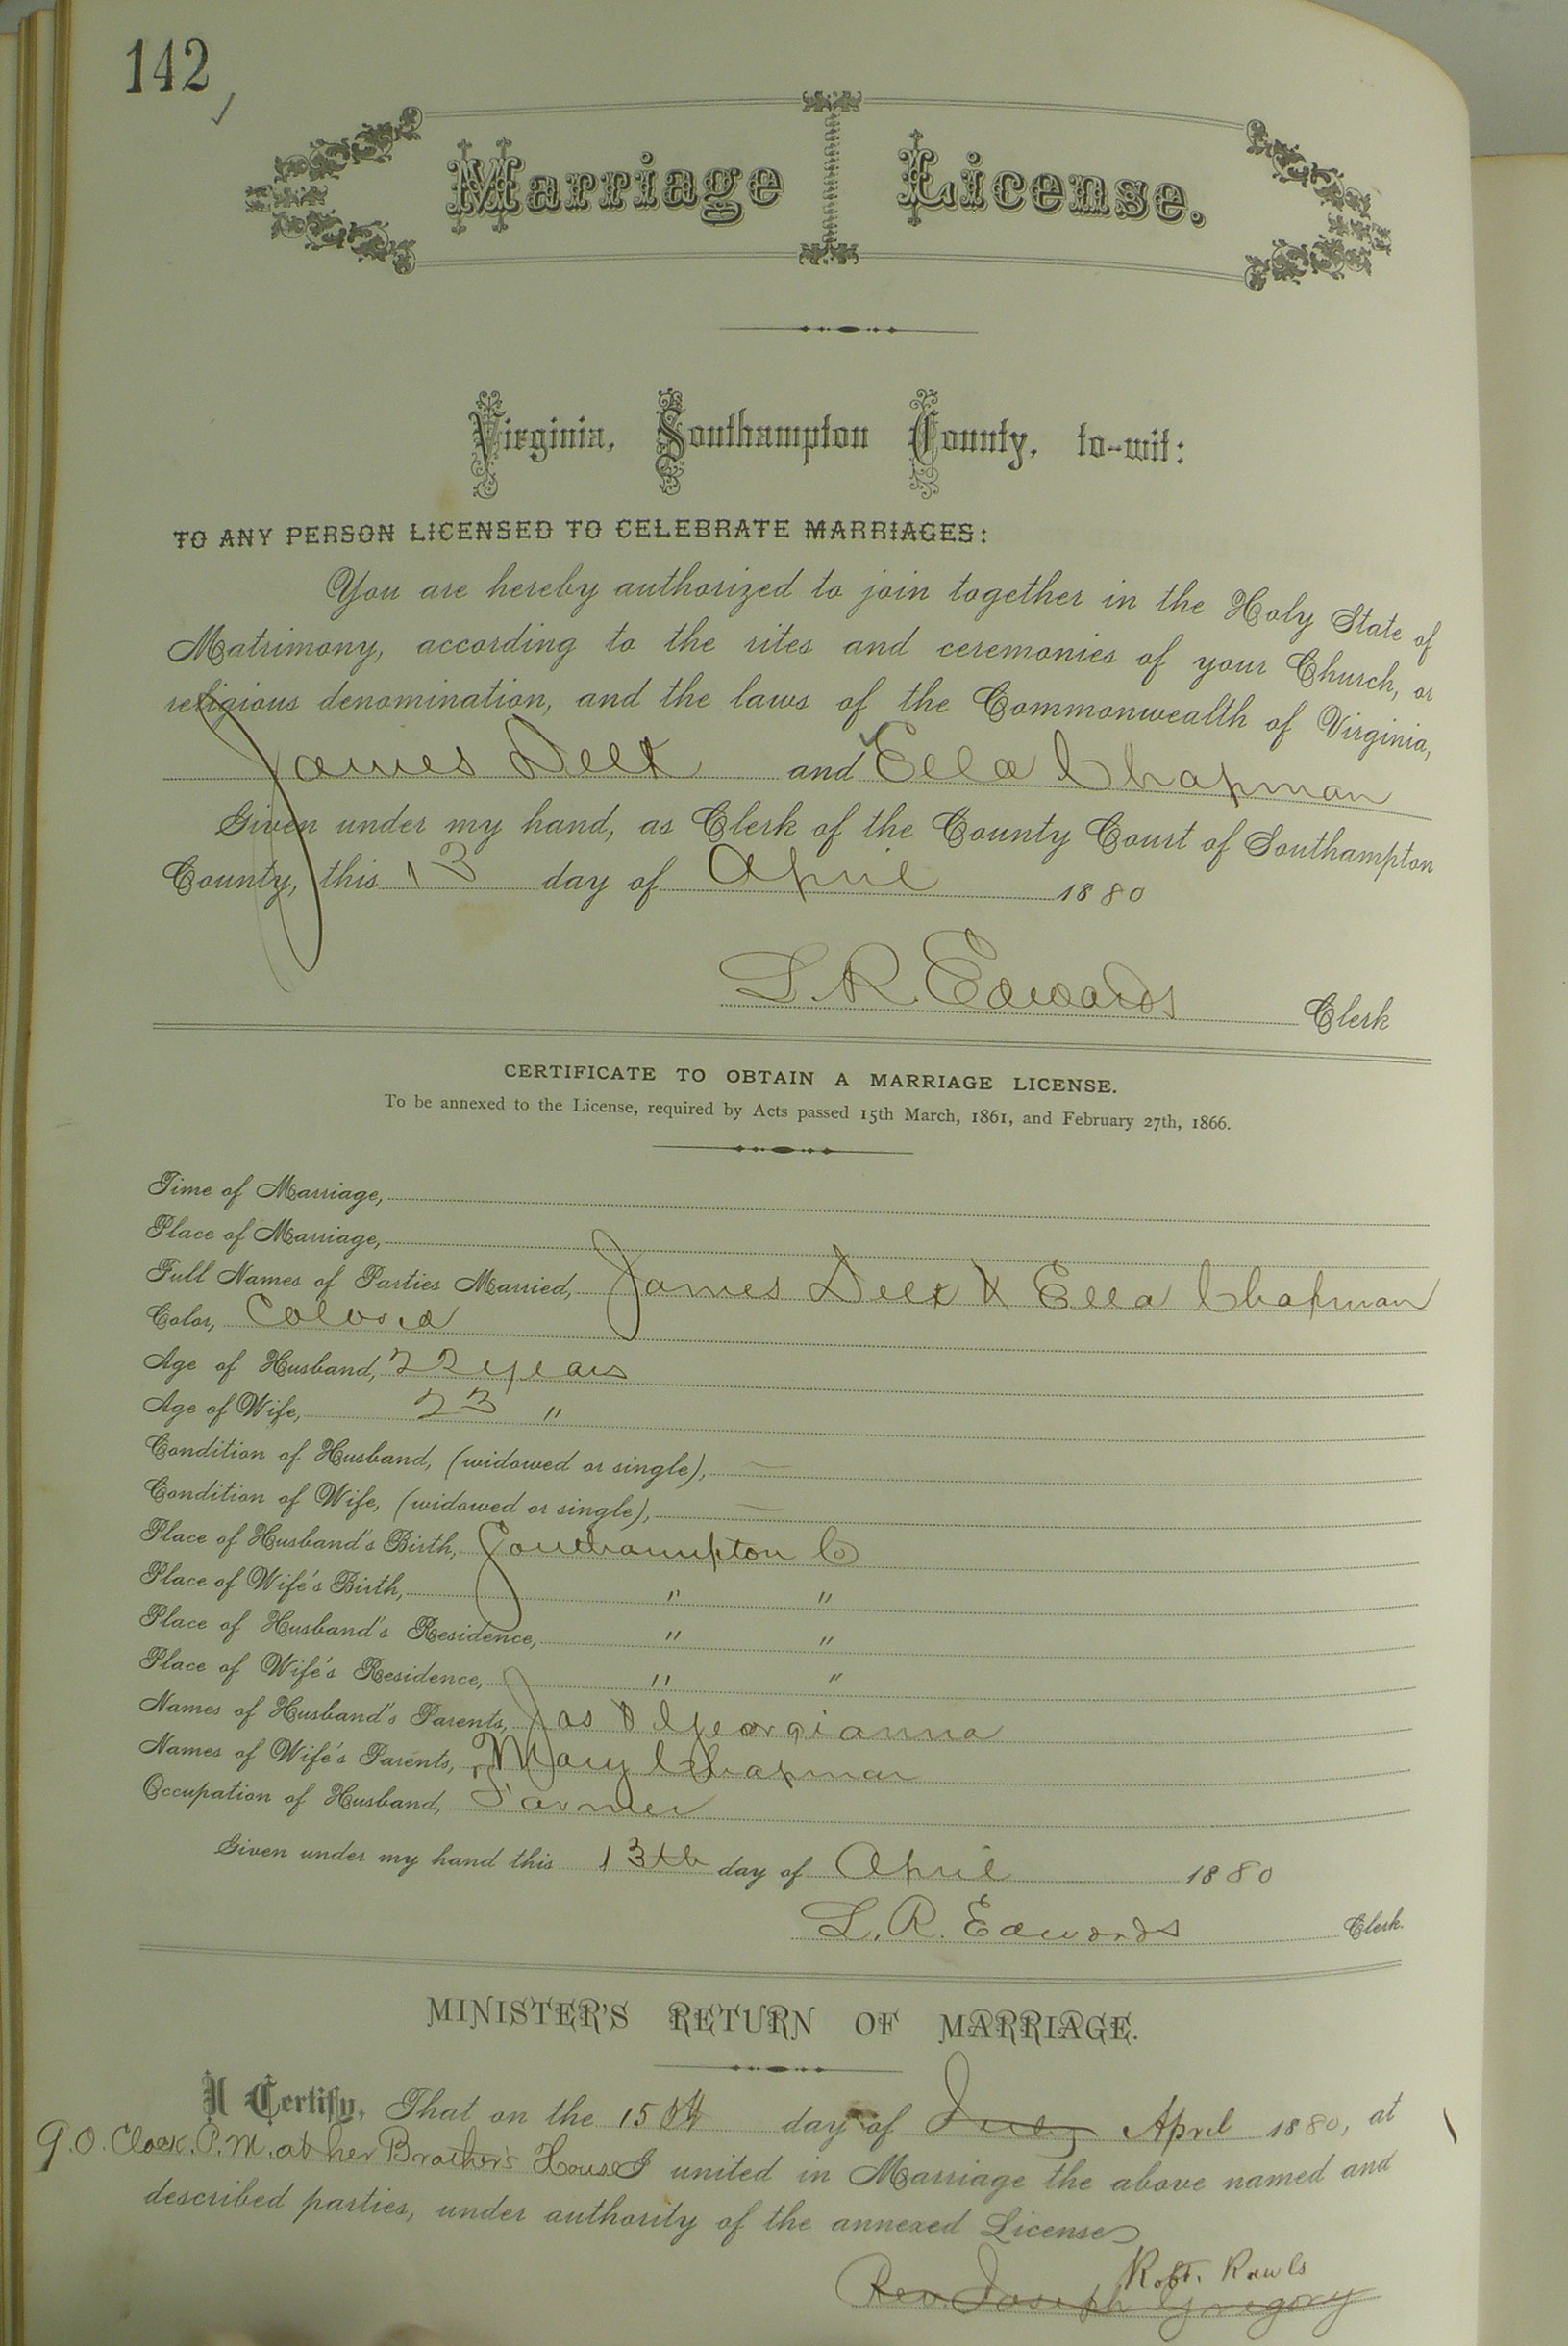 142
Marriage License.
Virginia, Southampton County, to-wit:
TO ANY PERSON LICENSED TO CELEBRATE MARRIAGES:
You are hereby authorized to join together in the Holy State of
Matrimony, according to the rites and ceremonies of your Church, or
religious denomination, and the laws of the Commonwealth of Virginia,
James Delk and Ella Chapman
Given under my hand, as Clerk of the County Court of Southampton
County, this 13 day of April 1880
L. R. Edwards Clerk
CERTIFICATE TO OBTAIN A MARRIAGE LICENSE.
To be annexed to the License, required by Acts passed 15th March, 1861, and February 27th, 1866.
Time of Marriage,
Place of Marriage,
Full Names of Parties Married, James Delk & Ella Chapman
Color, Colored
Age of Husband, 22 years
Age of Wife, 23 "
Condition of Husband, (widowed or single), —
Condition of Wife, (widowed or single), —
Place of Husband's Birth, Southampton Co
Place of Wife's Birth, " "
Place of Husband's Residence, " "
Place of Wife's Residence, " "
Names of Husband's Parents, Jas & Georgianna
Names of Wife's Parents, Mary Chapman
Occupation of Husband, Farmer
Given under my hand this 13th day of April 1880
L. R. Edwards Clerk.
MINISTER'S RETURN OF MARRIAGE.
I Certify, That on the 15th day of July April 1880, at
9.O.Clock.P.M. at her Brother's House I united in Marriage the above named and
described parties, under authority of the annexed License
Robt. Rawls
Rev. Joseph Gregory